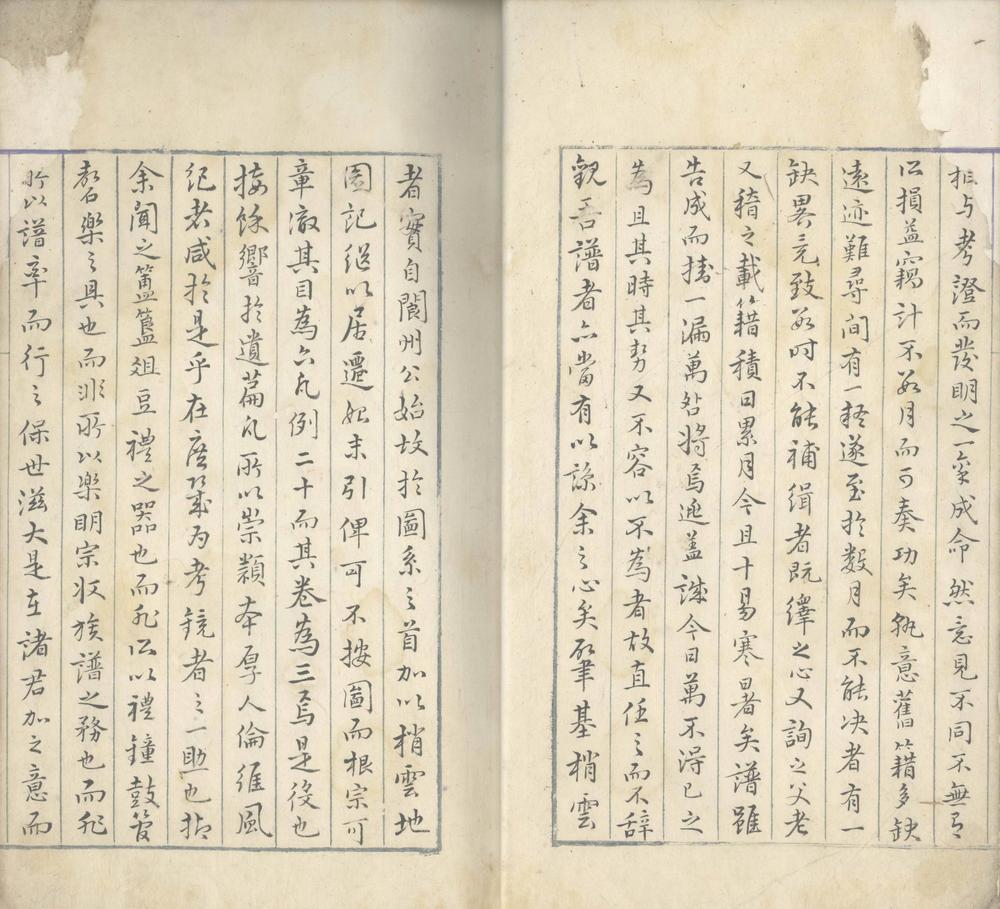 相与考證而發明之一氣成命然意見不同不無有
以損益竊計不数月而可奏功矣孰意舊籍多缺
遠迹難尋间有一疑遂至於数月而不能决者有一
缺畧竟致数时不能補缉者既繹之心又詢之父老
又稽之載籍積日累月今且十易寒暑矣譜雖
告成而掛一漏萬咎將焉逃盖誠今日萬不得已之
為且其時其势又不容以不為者故直任之而不辞
觀吾譜者亦當有以諒余之心矣肇基梢雲
者實自閬州公始故於圖系之首加以梢雲地
圖記继以居遷始末引俾可不按圖而根宗可
章澈其目為六凡例二十而其卷為三焉是役也
接餘響於遺篇凡所以崇類本厚人倫維風
纪者咸於是乎在庶幾为考鏡者之一助也抑
余聞之簠簋俎豆禮之器也而非所以禮鐘鼓管
磬樂之具也而非所以樂明宗收族譜之務也而非
所以譜率而行之保世滋大是在諸君加之意而